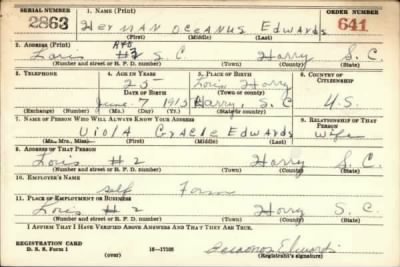 SERIAL NUMBER 1. NAME (Print) ORDER NUMBER
2863 Herman Oceanus Edwards 641
(First) (Middle) (Last)
2. ADDRESS (Print) RFD
Loris #2 S. C. Horry S. C.
(Number and street or R. F. D. number) (Town) (County) (State)
3. TELEPHONE 4. AGE IN YEARS 5. PLACE OF BIRTH 6. COUNTRY OF CITIZENSHIP
25 Loris Horry
DATE OF BIRTH (Town or county)
June 7 1915 Horry, S. C U.S.
(Exchange) (Number) (Mo.) (Day) (Yr.) (State or country)
7. NAME OF PERSON WHO WILL ALWAYS KNOW YOUR ADDRESS 9. RELATIONSHIP OF THAT PERSON
Viola Gracie Edwards Wife
(Mr., Mrs., Miss) (First) (Middle) (Last)
8. ADDRESS OF THAT PERSON
Loris #2 Horry S. C.
(Number and street or R. F. D. number) (Town) (County) (State)
10. EMPLOYER'S NAME
self Farm
11. PLACE OF EMPLOYMENT OR BUSINESS
Loris #2 Horry S. C.
(Number and street or R. F. D. number) (Town) (County) (State)
I AFFIRM THAT I HAVE VERIFIED ABOVE ANSWERS AND THAT THEY ARE TRUE.
REGISTRATION CARD
D. S. S. Form 1 (over) Edwards
(Registrant's signature)